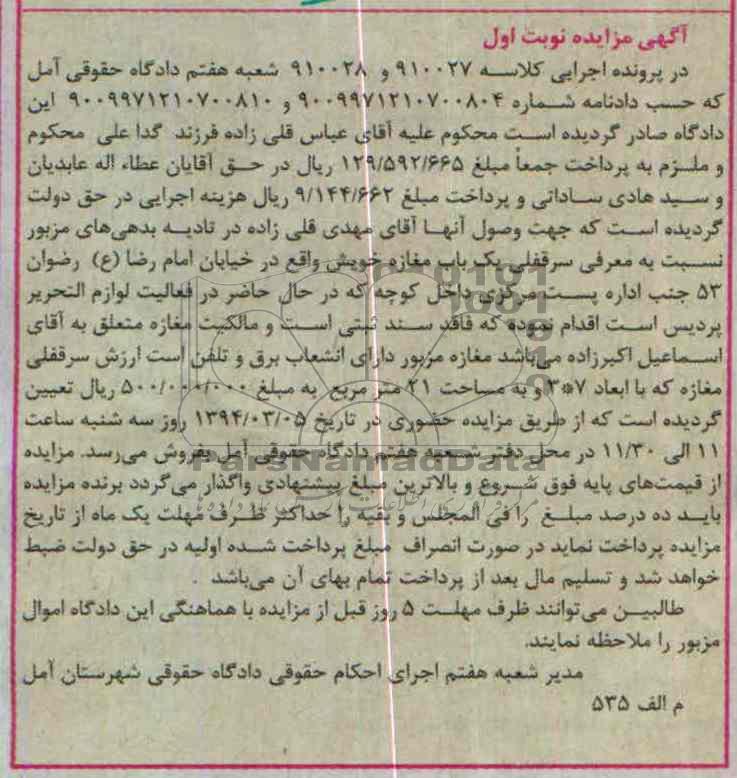 آگهی مزایده نوبت اول
در پرونده اجرایی کلاسه ۹۱۰۰۲۷ و ۹۱۰۰۲۸ شعبه هفتم دادگاه حقوقی آمل
که حسب دادنامه شماره ۹۰۰۹۹۷۱۲۱۰۷۰۰۸۰۴ و ۹۰۰۹۹۷۱۲۱۰۷۰۰۸۱۰ این
دادگاه صادر گردیده است محکوم علیه آقای عباس قلی زاده فرزند گدا علی محکوم
و ملزم به پرداخت جمعاً مبلغ ۱۲۹/۵۹۲/۶۶۵ ریال در حق آقایان عطاء اله عابدیان
و سید هادی ساداتی و پرداخت مبلغ ۹/۱۴۴/۶۶۲ ریال هزینه اجرایی در حق دولت
گردیده است که جهت وصول آنها آقای مهدی قلی زاده در تادیه بدهی‌های مزبور
نسبت به معرفی سرقفلی یک باب مغازه خویش واقع در خیابان امام رضا (ع) رضوان
۵۳ جنب اداره پست مرکزی داخل کوچه که در حال حاضر در فعالیت لوازم التحریر
پردیس است اقدام نموده که فاقد سند ثبتی است و مالکیت مغازه متعلق به آقای
اسماعیل اکبرزاده می‌باشد مغازه مزبور دارای انشعاب برق و تلفن است ارزش سرقفلی
مغازه که با ابعاد ۷*۳ و به مساحت ۲۱ متر مربع به مبلغ ۵۰۰/۰۰۰/۰۰۰ ریال تعیین
گردیده است که از طریق مزایده حضوری در تاریخ ۱۳۹۴/۰۳/۰۵ روز سه شنبه ساعت
۱۱ الی ۱۱/۳۰ در محل دفتر شعبه هفتم دادگاه حقوقی آمل بفروش می‌رسد. مزایده
ParsNamadData
از قیمت‌های پایه فوق شروع و بالاترین مبلغ پیشنهادی واگذار می‌گردد برنده مزایده
باید ده درصد مبلغ را فی المجلس و بقیه را حداکثر ظرف مهلت یک ماه از تاریخ
مزایده پرداخت نماید در صورت انصراف مبلغ پرداخت شده اولیه در حق دولت ضبط
خواهد شد و تسلیم مال بعد از پرداخت تمام بهای آن می‌باشد .
طالبین می‌توانند ظرف مهلت ۵ روز قبل از مزایده با هماهنگی این دادگاه اموال
مزبور را ملاحظه نمایند.
مدیر شعبه هفتم اجرای احکام حقوقی دادگاه حقوقی شهرستان آمل
م الف ۵۳۵